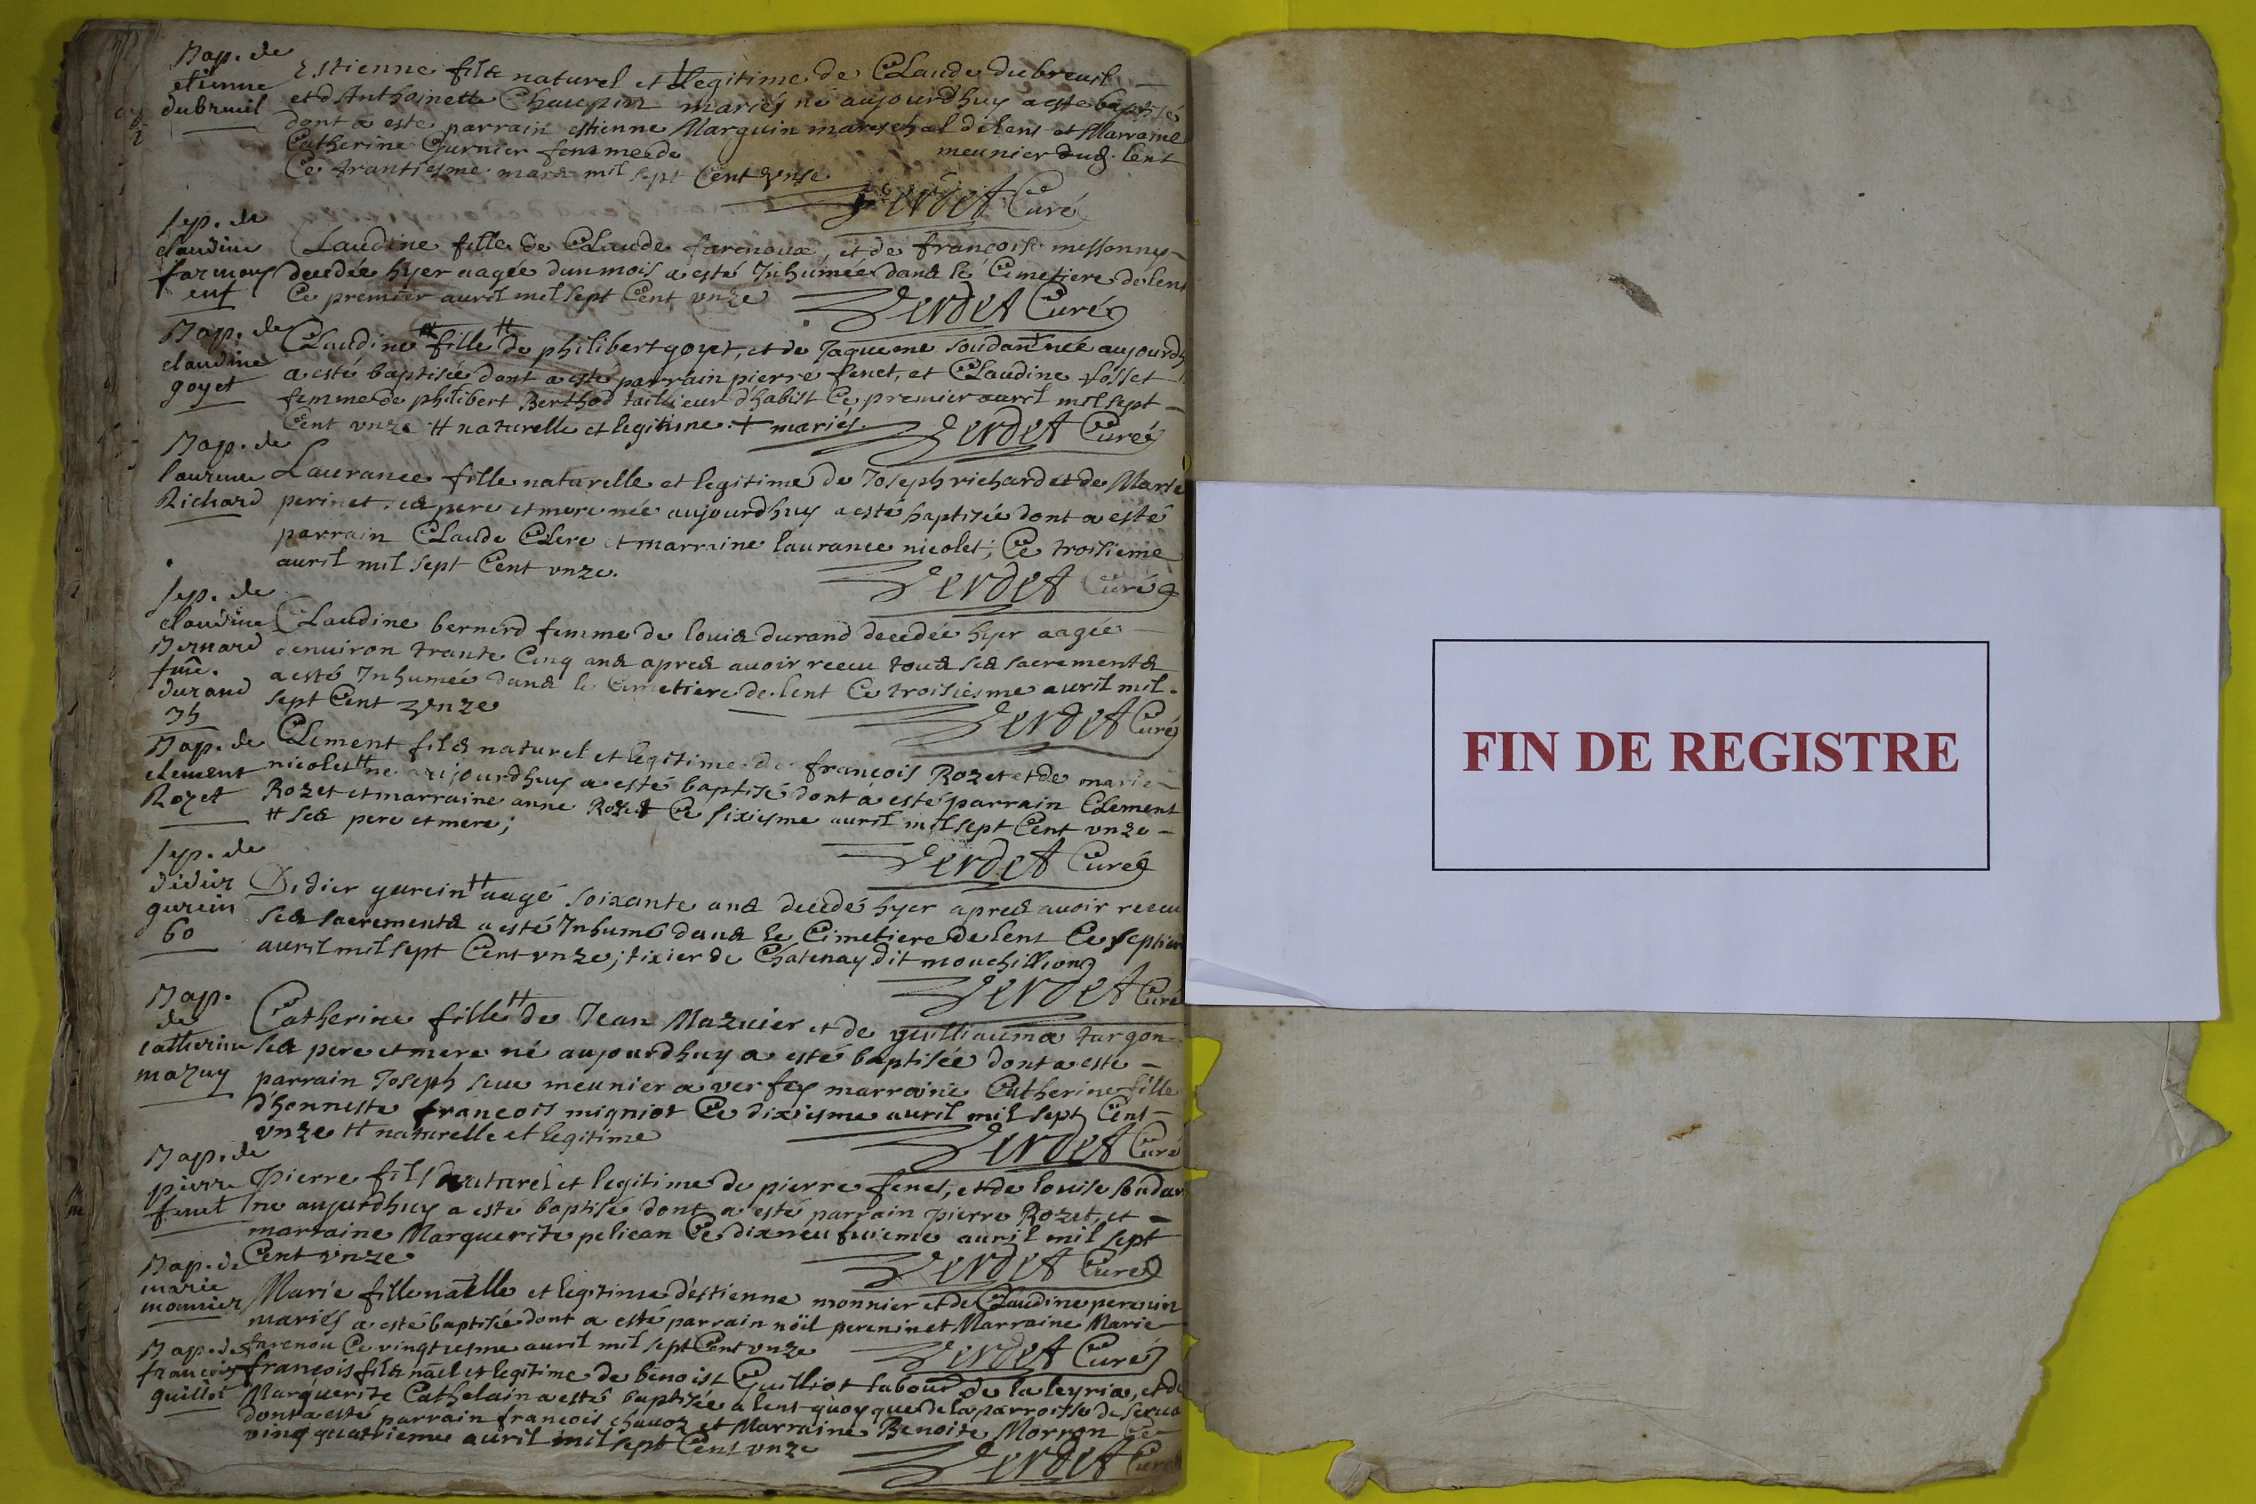 Bap. de
etienne
dubreuil
Estienne fils naturel et legitime de Claude dubreuil
et d'Anthoinette Chaupin mariés né aujourdhuy a esté baptisé
dont a esté parrain estienne Marguin mareschal de lent et Marraine
Catherine Gurnier femme de meunier dud. lent
Ce trantiesme mars mil sept Cent unze
Verdet Curé
Sep. de
claudine
farnoux
Claudine fille de Claude farenoux, et de françoise messonny
decedée hyer aagée dun mois a esté Inhumée dans le Cimetiere de lent
Ce premier avril mil sept Cent unze
Verdet Curé
Bap. de
claudine
goyet
Claudine # fille de philibert goyet, et de Jaqueme soudan + née aujourdhuy
a esté baptisée dont a esté parrain pierre fenet, et Claudine
femme de philibert Berthod taillieur d'habist Ce premier avril mil sept
Cent unze # naturelle et legitime + mariés
Verdet Curé
Bap. de
laurence
Richard
Laurance fille naturelle et legitime de Joseph richard et de Marie
perinet ses pere et mere née aujourdhuy a esté baptisée dont a esté
parrain Claude Clere et marraine laurance nicolet; Ce troisieme
avril mil sept Cent unze.
Verdet Curé
Sep. de
claudine
Bernard
fme.
durand
35
Claudine bernard femme de louis durand decedée hyer aagée
denviron trante Cinq ans apres avoir receu tous ses sacrements
a esté Inhumée dans le Cimetiere de lent Ce troisiesme avril mil
sept Cent unze
Verdet Curé
Bap. de
clement
Rozet
Clement fils naturel et legitime de françois Rozet et de marie
nicolet # né aujourdhuy a esté baptisé dont a esté parrain Clement
Rozet et marraine anne Rozet Ce sixiesme avril mil sept Cent unze
# ses pere et mere;
Verdet Curé
Sep. de
didier
gurcin
60
Didier gurcin # aagé soixante ans decedé hyer apres avoir receu
ses sacrements a esté Inhumé dans le Cimetiere de lent Ce septieme
avril mil sept Cent unze; # tixier de Chatenay dit mouchillion
Verdet Curé
Bap.
de
catherine
mazuy
Catherine fille # de Jean Mazuier et de guilliauma turgon
ses pere et mere né aujourdhuy a esté baptisée dont a esté
parrain Joseph seue meunier a verfey marraine Catherine fille
d'honneste françois migniot Ce dixiesme avril mil sept Cent
unze # naturelle et legitime
Verdet Curé
Bap. de
pierre
fenet
Pierre fils naturel et legitime de pierre fenet, et de louise soudan
né aujourdhuy a esté baptisé dont a esté parrain pierre Rozet, et
marraine Marguerite pelican Ce dixneufuieme avril mil sept
Cent unze
Verdet Curé
Bap. de
marie
monnier
Marie fille nalle et legitime d'estienne monnier et de Claudine perenin
mariés a esté baptisée dont a esté parrain noïl perenin et Marraine Marie
farenou Ce vingtiesme avril mil sept Cent unze
Verdet Curé
Bap. de
françois
guillot
françois fils nael et legitime de benoist Guilliot labour de la leyria, et de
Marguerite Cathelain a esté baptisée a lent quoy que de la parroisse de servas
dont a esté parrain françois chavoz et Marraine Benoite Morron Ce
vingt quatrieme avril mil sept Cent unze
Verdet Curé
FIN DE REGISTRE